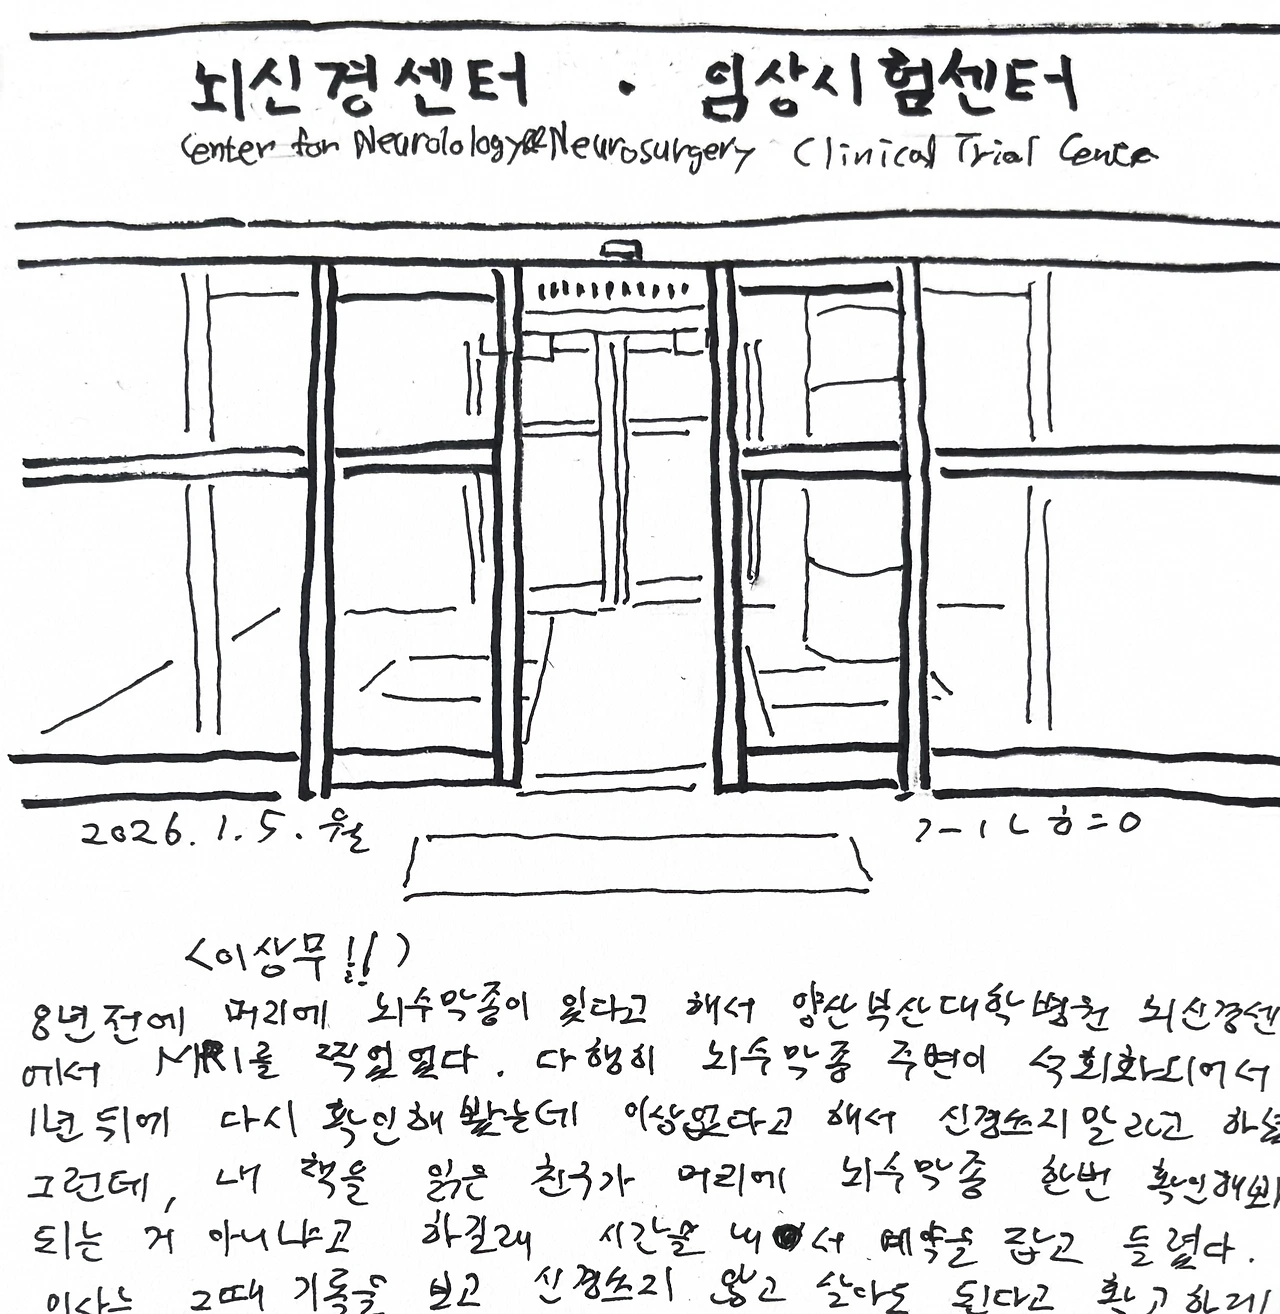 뇌신경센터 · 임상시험센터
Center for Neurolology&Neurosurgery Clinical Trial Cente
2026. 1. 5. 월
<이상무!!>
8년전에 머리에 뇌수막종이 있다고 해서 양산부산대학병원 뇌신경센
에서 MRI를 찍었었다. 다행히 뇌수막종 주변이 석회화되어서
1년 뒤에 다시 확인해 봤는데 이상없다고 해서 신경쓰지 말라고 하셨
그런데, 내 책을 읽은 친구가 머리에 뇌수막종 한번 확인해봐
되는 거 아니냐고 하길래 시간을 내서 예약을 잡고 들렸다.
의사는 그때 기록을 보고 신경쓰지 않고 살아도 된다고 확